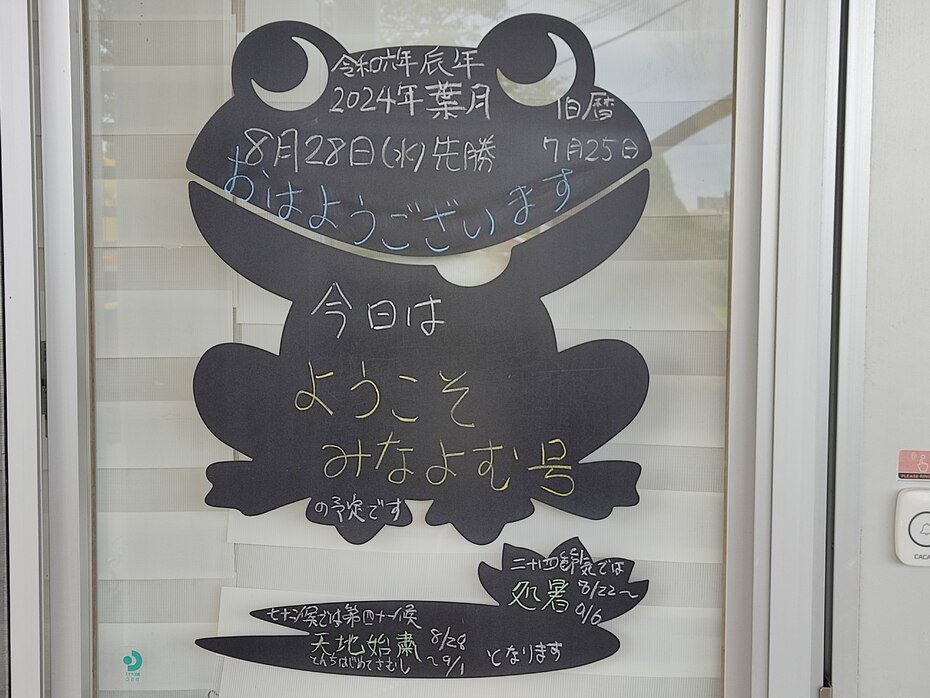 令和六年辰年
2024年葉月
旧暦
8月28日(水)先勝
7月25日
おはようございます
今日は
ようこそ
みなよむ号
の予定です
二十四節気では
処暑 8/22〜
9/6
七十二候では第四十一候
天地始粛 8/28
てんちはじめてさむし 〜9/1
となります